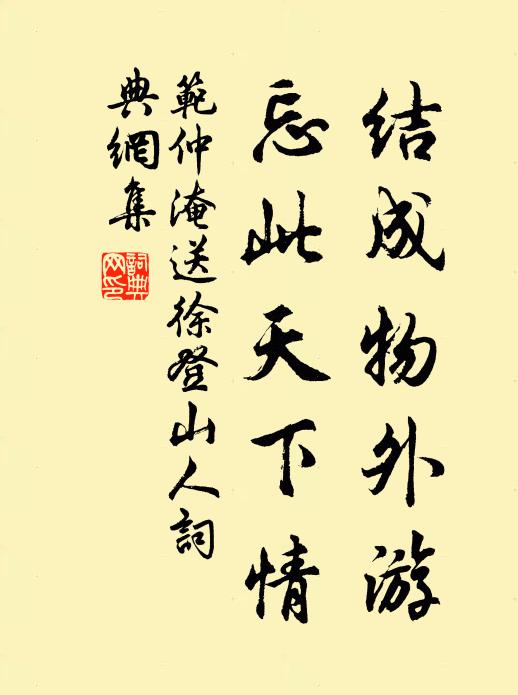 结成物外游
忘此天下情
範仲淹送徐登山人詞
典網集
詞典
网印